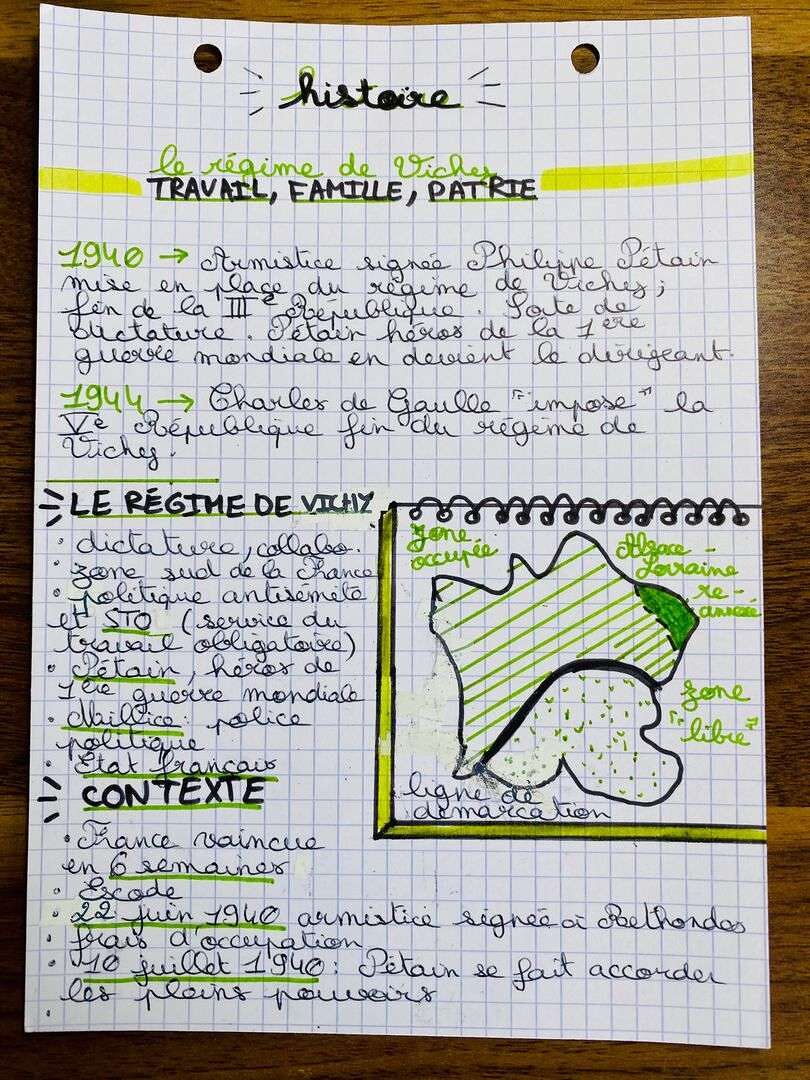 histoire
le régime de Vichy
TRAVAIL, FAMILLE, PATRIE
1940 → Armistice signée Philippe Pétain
mise en place du régime de Vichy ;
fin de la IIIe République. Sorte de
dictature. Pétain héros de la 1ère
guerre mondiale en devient le dirigeant.
1944 → Charles de Gaulle "impose" la
Ve République fin du régime de
Vichy.
LE RÉGIME DE VICHY
• dictature, collabo.
• zone sud de la France
• politique antisémite
et STO (service du
travail obligatoire)
• Pétain, héros de
1ère guerre mondiale
• Maillice : police
politique
• État français
zone
occupée
Alsace -
Lorraine
re-
annexé
zone
"libre"
ligne de
démarcation
CONTEXTE
• France vaincue
en 6 semaines
• Exode
• 22 juin 1940 armistice signée à Rethondes
• frais d'occupation
• 10 juillet 1940 : Pétain se fait accorder
les pleins pouvoirs